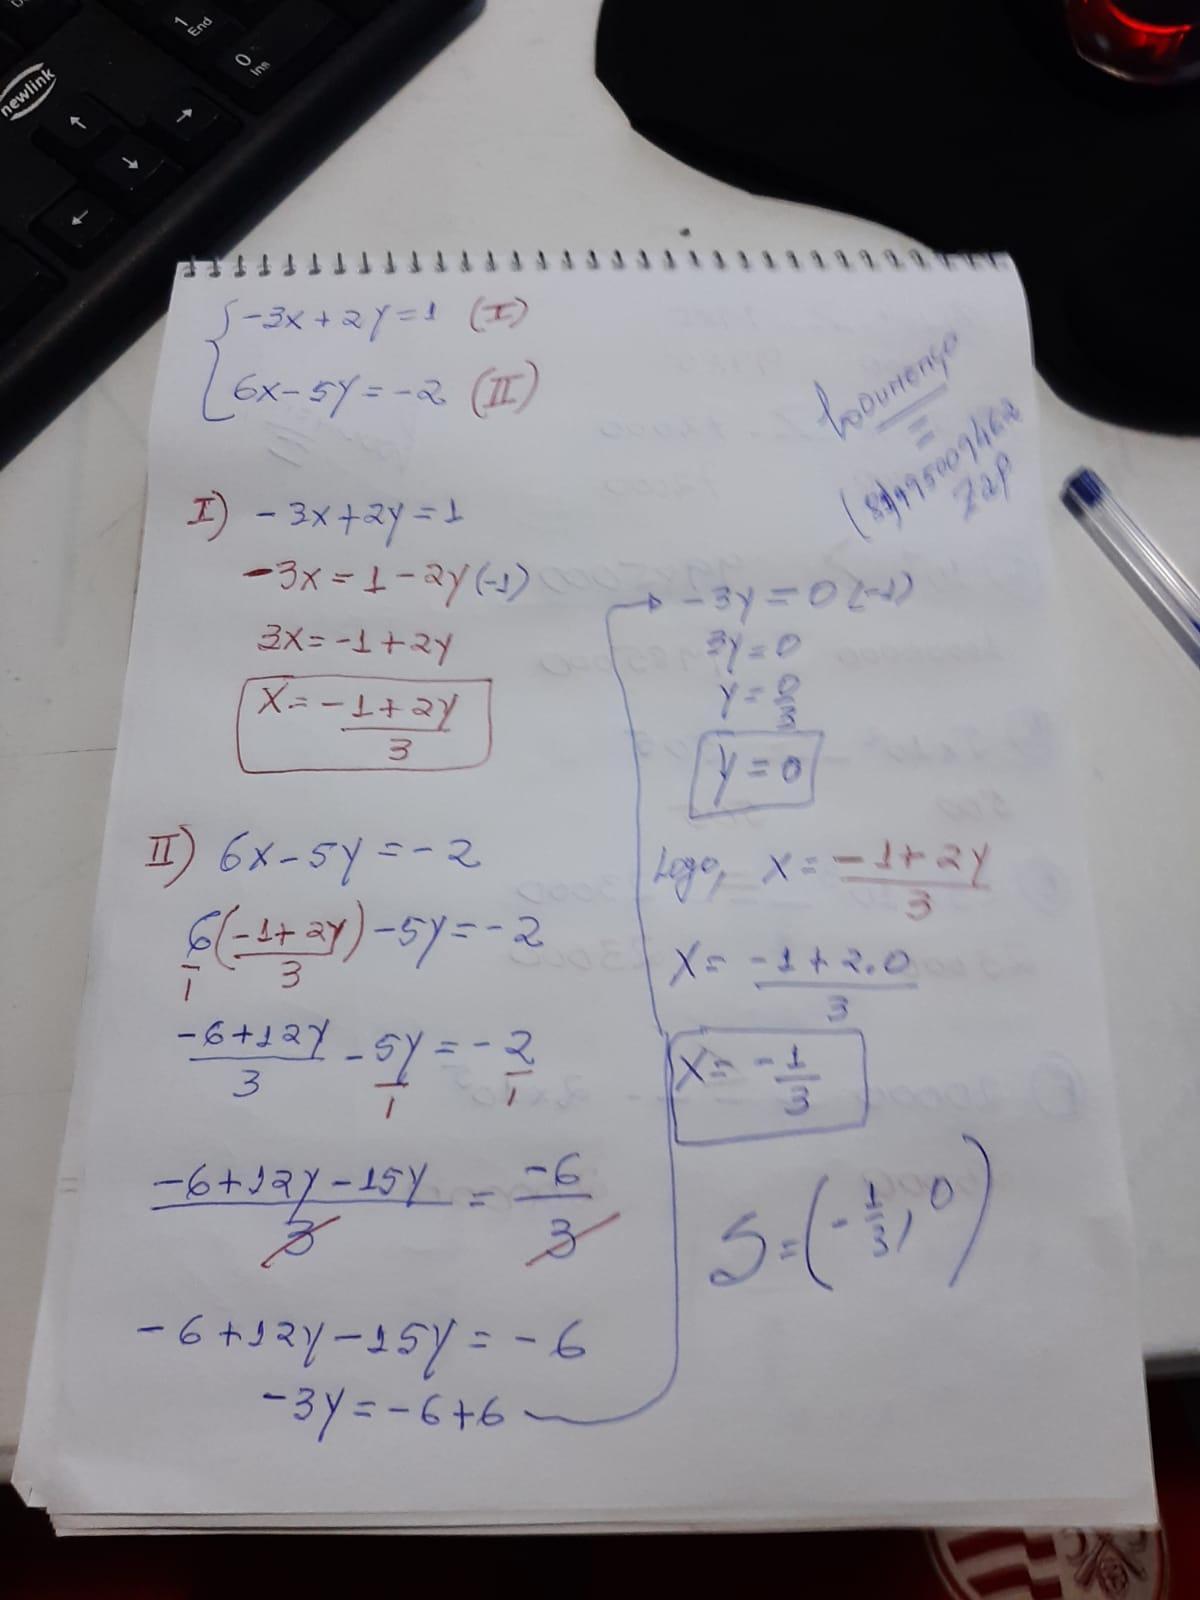 newlink
1
End
0
Ins
-3x+2y=1 (I)
6x-5y=-2 (II)
Zap
I) -3x+2y=1
-3x=1-2y(-1)
3x=-1+2y
x=-1+2y
3
II) 6x-5y=-2
6(-1+2y)-5y=-2
1 3
-6+12y-5y=-2
3 1 1
-6+12y-15y=-6
3 3
-6+12y-15y=-6
-3y=-6+6
-3y=0(-1)
3y=0
y=0
3
y=0
Logo, x=-1+2y
3
x=-1+2.0
3
x=-1
3
S=(-1/3, 0)